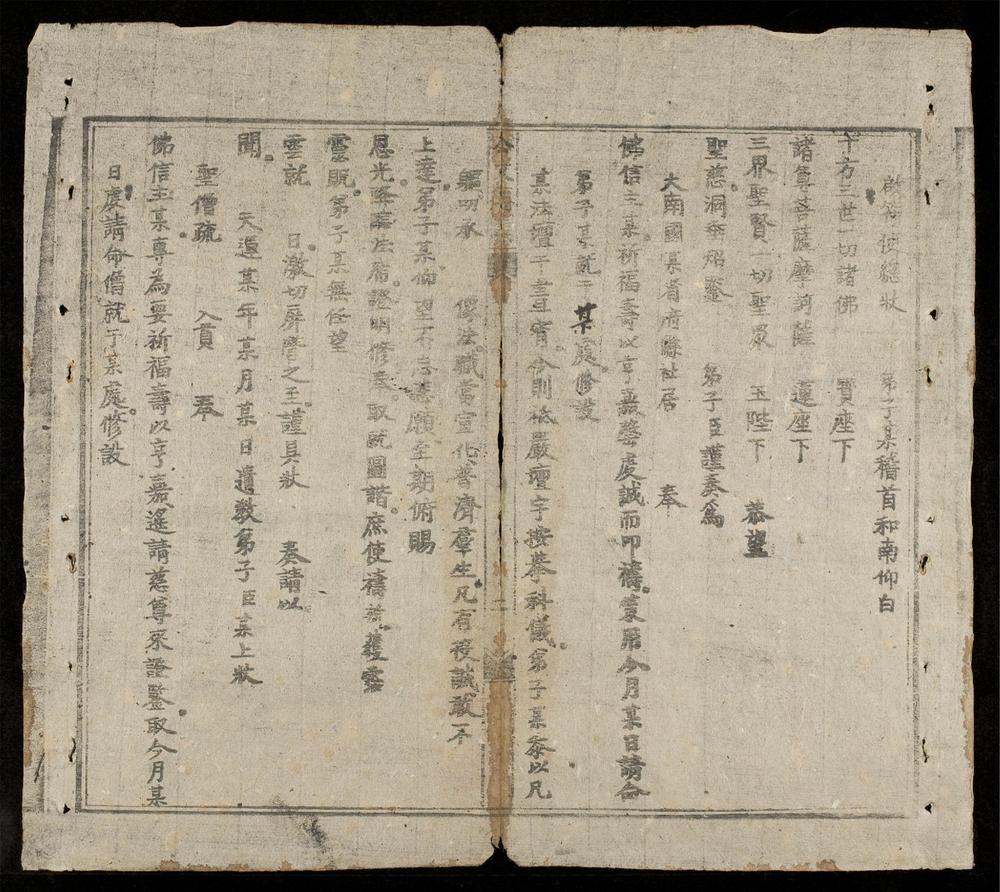 啟答使總狀 弟子某稽首和南仰白
十方三世一切諸佛 寶座下
諸尊菩薩摩訶薩 蓮座下
三界聖賢一切聖眾 玉陛下 恭望
聖慈洞垂炤鑒 弟子臣謹奏為
大南國某省府縣社居 奉
佛信主某祈福壽以亨嘉罄虔誠而叩禱 今月某日請命
弟子某就于某處修設
某法壇 今則 嚴壇宇按摹科儀弟子某忝以凡
軀叨承 佛法職當宣化普濟羣生凡有投誠敢不
上達弟子某仰望 願至期俯賜
恩光降 證明修奉 庶使禱祈獲
靈貺弟子某無任望
雲就 日激切屏營之至謹具狀 奏請以
聞 天運某年某月某日遺教弟子臣某上狀
聖僧疏 入貢 奉
佛信主某專為要祈福壽以亨嘉遙請慈尊來證鑒取今月某
日虔請命僧就于某處修設